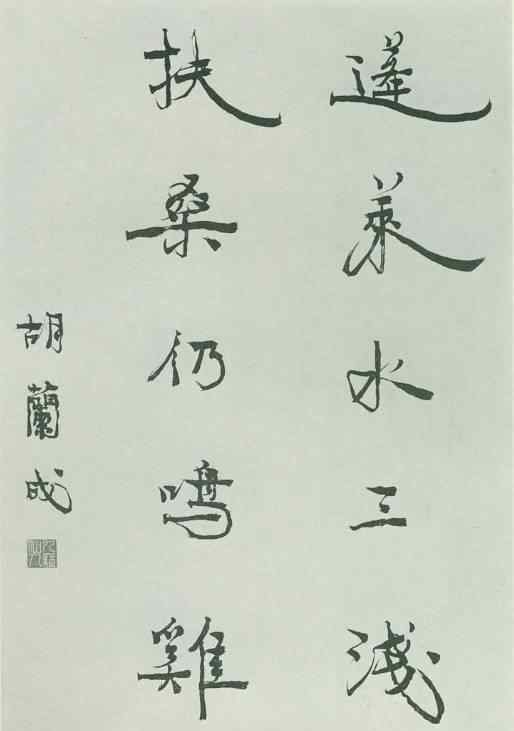 蓬萊水三淺
扶桑仍鳴雞
胡蘭成